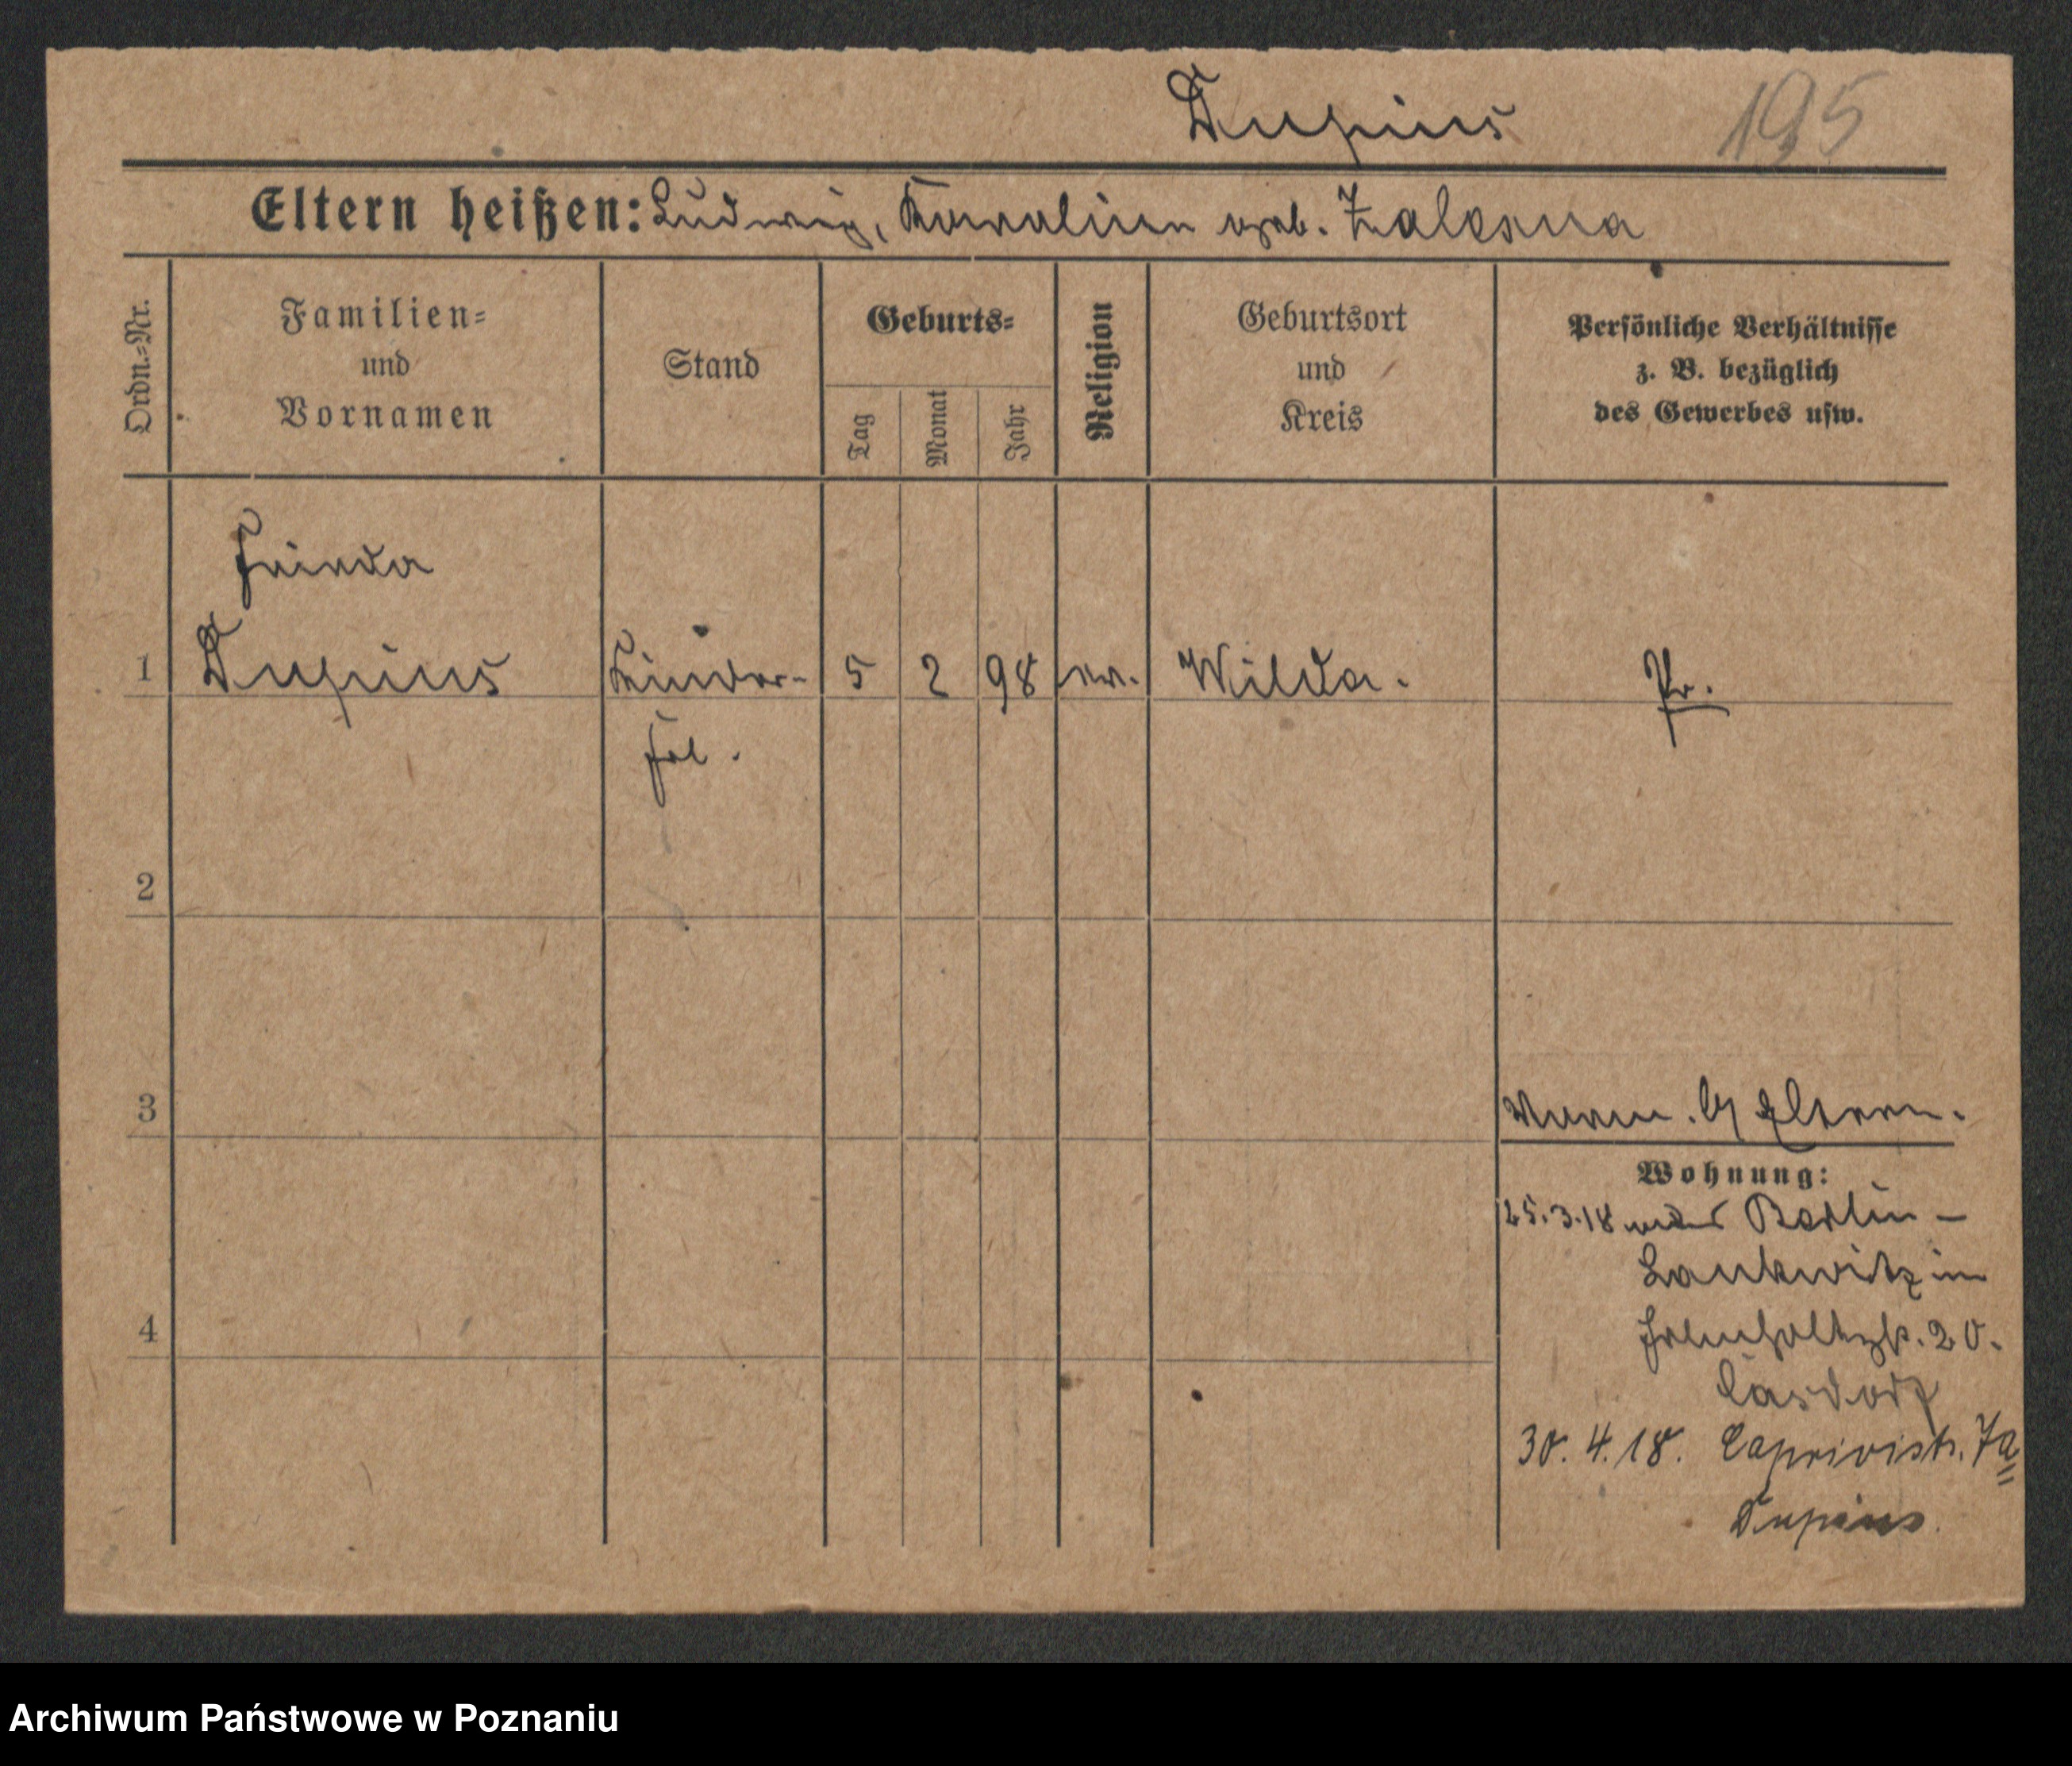 Dupius
195
Eltern heißen: Ludwig, Karoline geb. Zalesna
Ordn.=Nr.
Familien=
und
Vornamen
Stand
Geburts=
Tag
Monat
Jahr
Religion
Geburtsort
und
Kreis
Persönliche Verhältnisse
z. B. bezüglich
des Gewerbes usw.
Frieda
1 Dupius Kinder- 5 2 98 ev. Wilda. Pr.
frl.
2
3
Eltern.
Wohnung:
25.3.18 Berlin-
Lankwitz
4
20.
30.4.18. Caprivistr. 7a
Dupius.
Archiwum Państwowe w Poznaniu